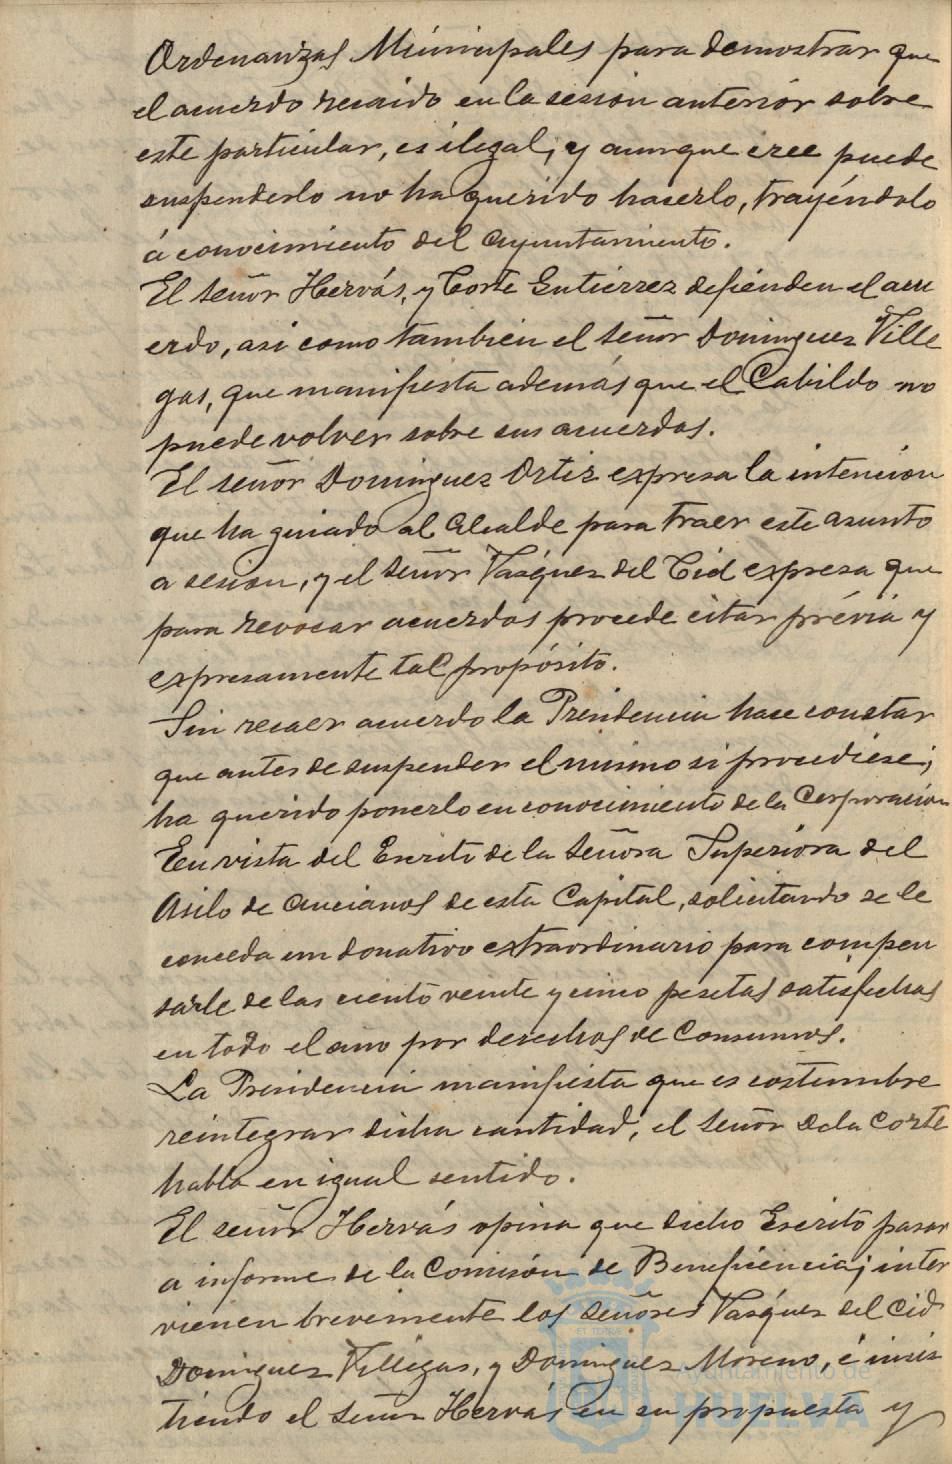 Ordenanzas Municipales para demostrar que
el acuerdo recaido en la sesion anterior sobre
este particular, es ilegal, y aunque cree puede
suspenderlo no ha querido hacerlo, trayéndolo
á conocimiento del Ayuntamiento.
El señor Hervás, y Corte Gutierrez defienden el acu
erdo, asi como tambien el señor Dominguez Ville
gas, que manifiesta además que el Cabildo no
puede volver sobre sus acuerdos.
El señor Dominguez Ortiz expresa la intencion
que ha guiado al Alcalde para traer este asunto
a sesion, y el señor Vazquez del Cid expresa que
para revocar acuerdos procede citar prévia y
expresamente tal propósito.
Sin recaer acuerdo la Presidencia hace constar
que antes de suspender el mismo si procediese,
ha querido ponerlo en conocimiento de la Corporación
En vista del Escrito de la Señora Superiora del
Asilo de Ancianos de esta Capital, solicitando se le
conceda un donativo extraordinario para compen
sarle de las ciento veinte y cinco pesetas satisfechas
en todo el año por derechos de Consumos.
La Presidencia manifiesta que es costumbre
reintegrar dicha cantidad, el señor de la Corte
habla en igual sentido.
El señor Hervás opina que dicho Escrito pasar
a informe de la Comisión de Beneficencia; inter
vienen brevemente los señores Vasquez del Cid
Dominguez Villegas, y Dominguez Moreno, é insis
tiendo el señor Hervás en su propuesta y
Ayuntamiento de
HUELVA